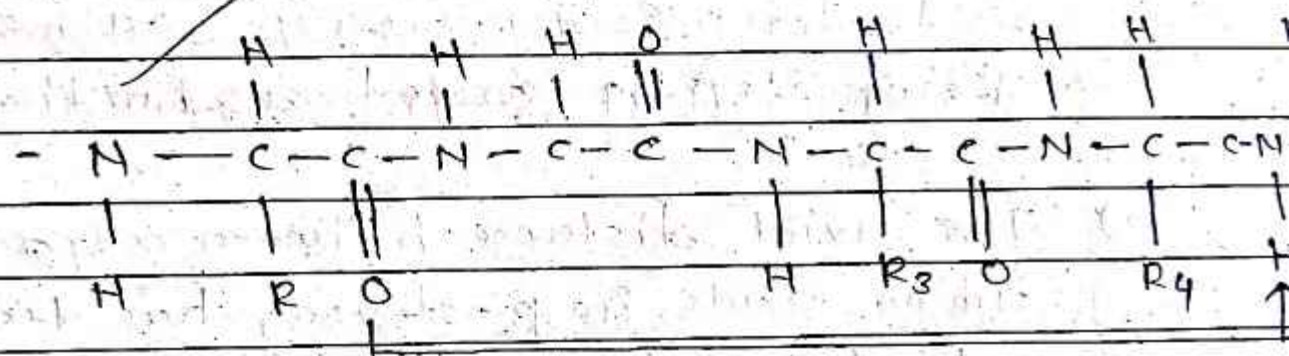 H H H O H H H
- N - C - C - N - C - C - N - C - C - N - C - C - N
H R O H R3 O R4 H